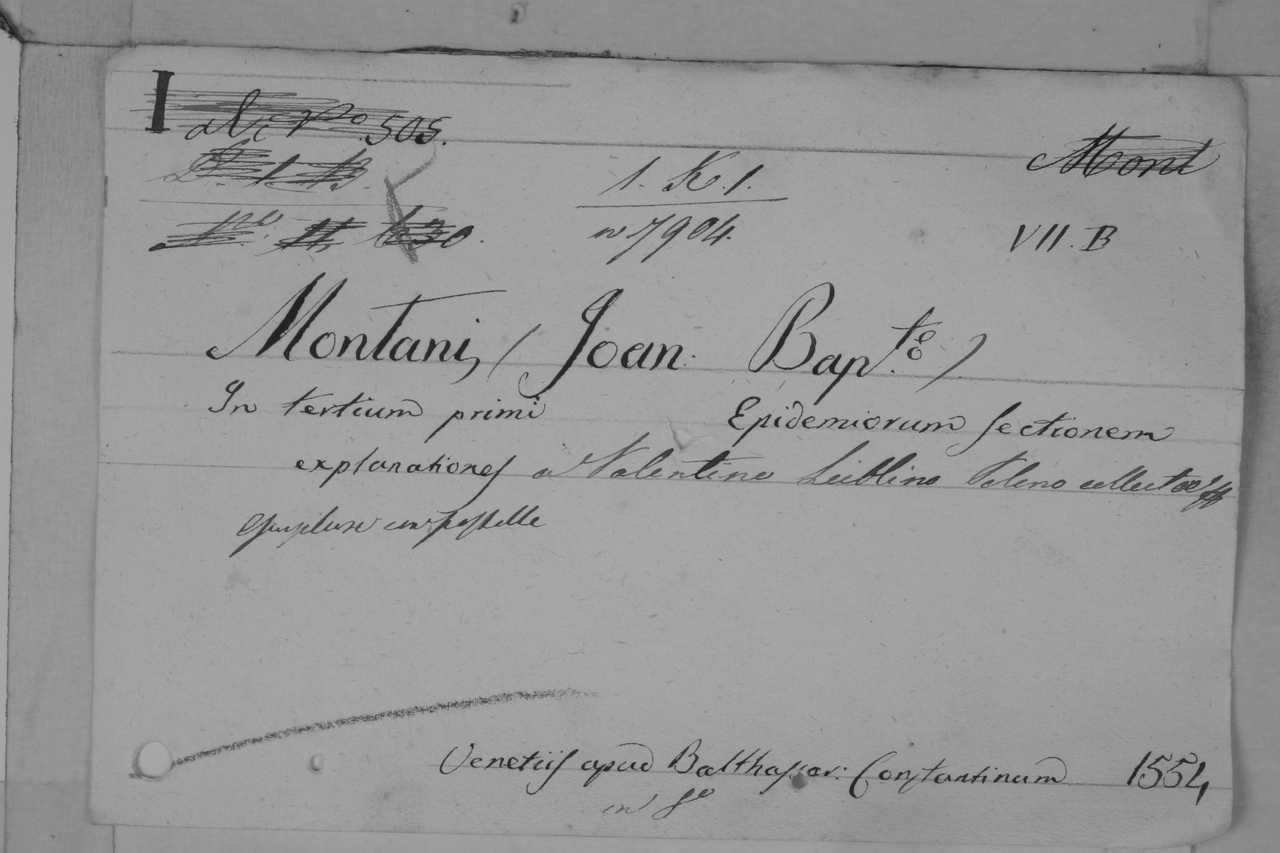 I
N.º 505.
1. K. 1.
Mont
n 7904.
VII. B
Montani, (Joan. Bap.to)
In tertium primi Epidemiorum sectionem
explanationes a Valentino Lublino Polono collectae
Venetiis apud Balthassar: Constantinum 1554,
in 8º